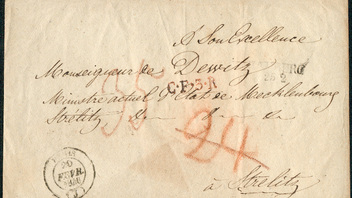 A Son Excellence
Monseigneur de Dewitz
C.F.3.R
Ministre actuel d'Etat de Mecklenbourg
Strelitz
24
à Strelitz
20
FEVR.